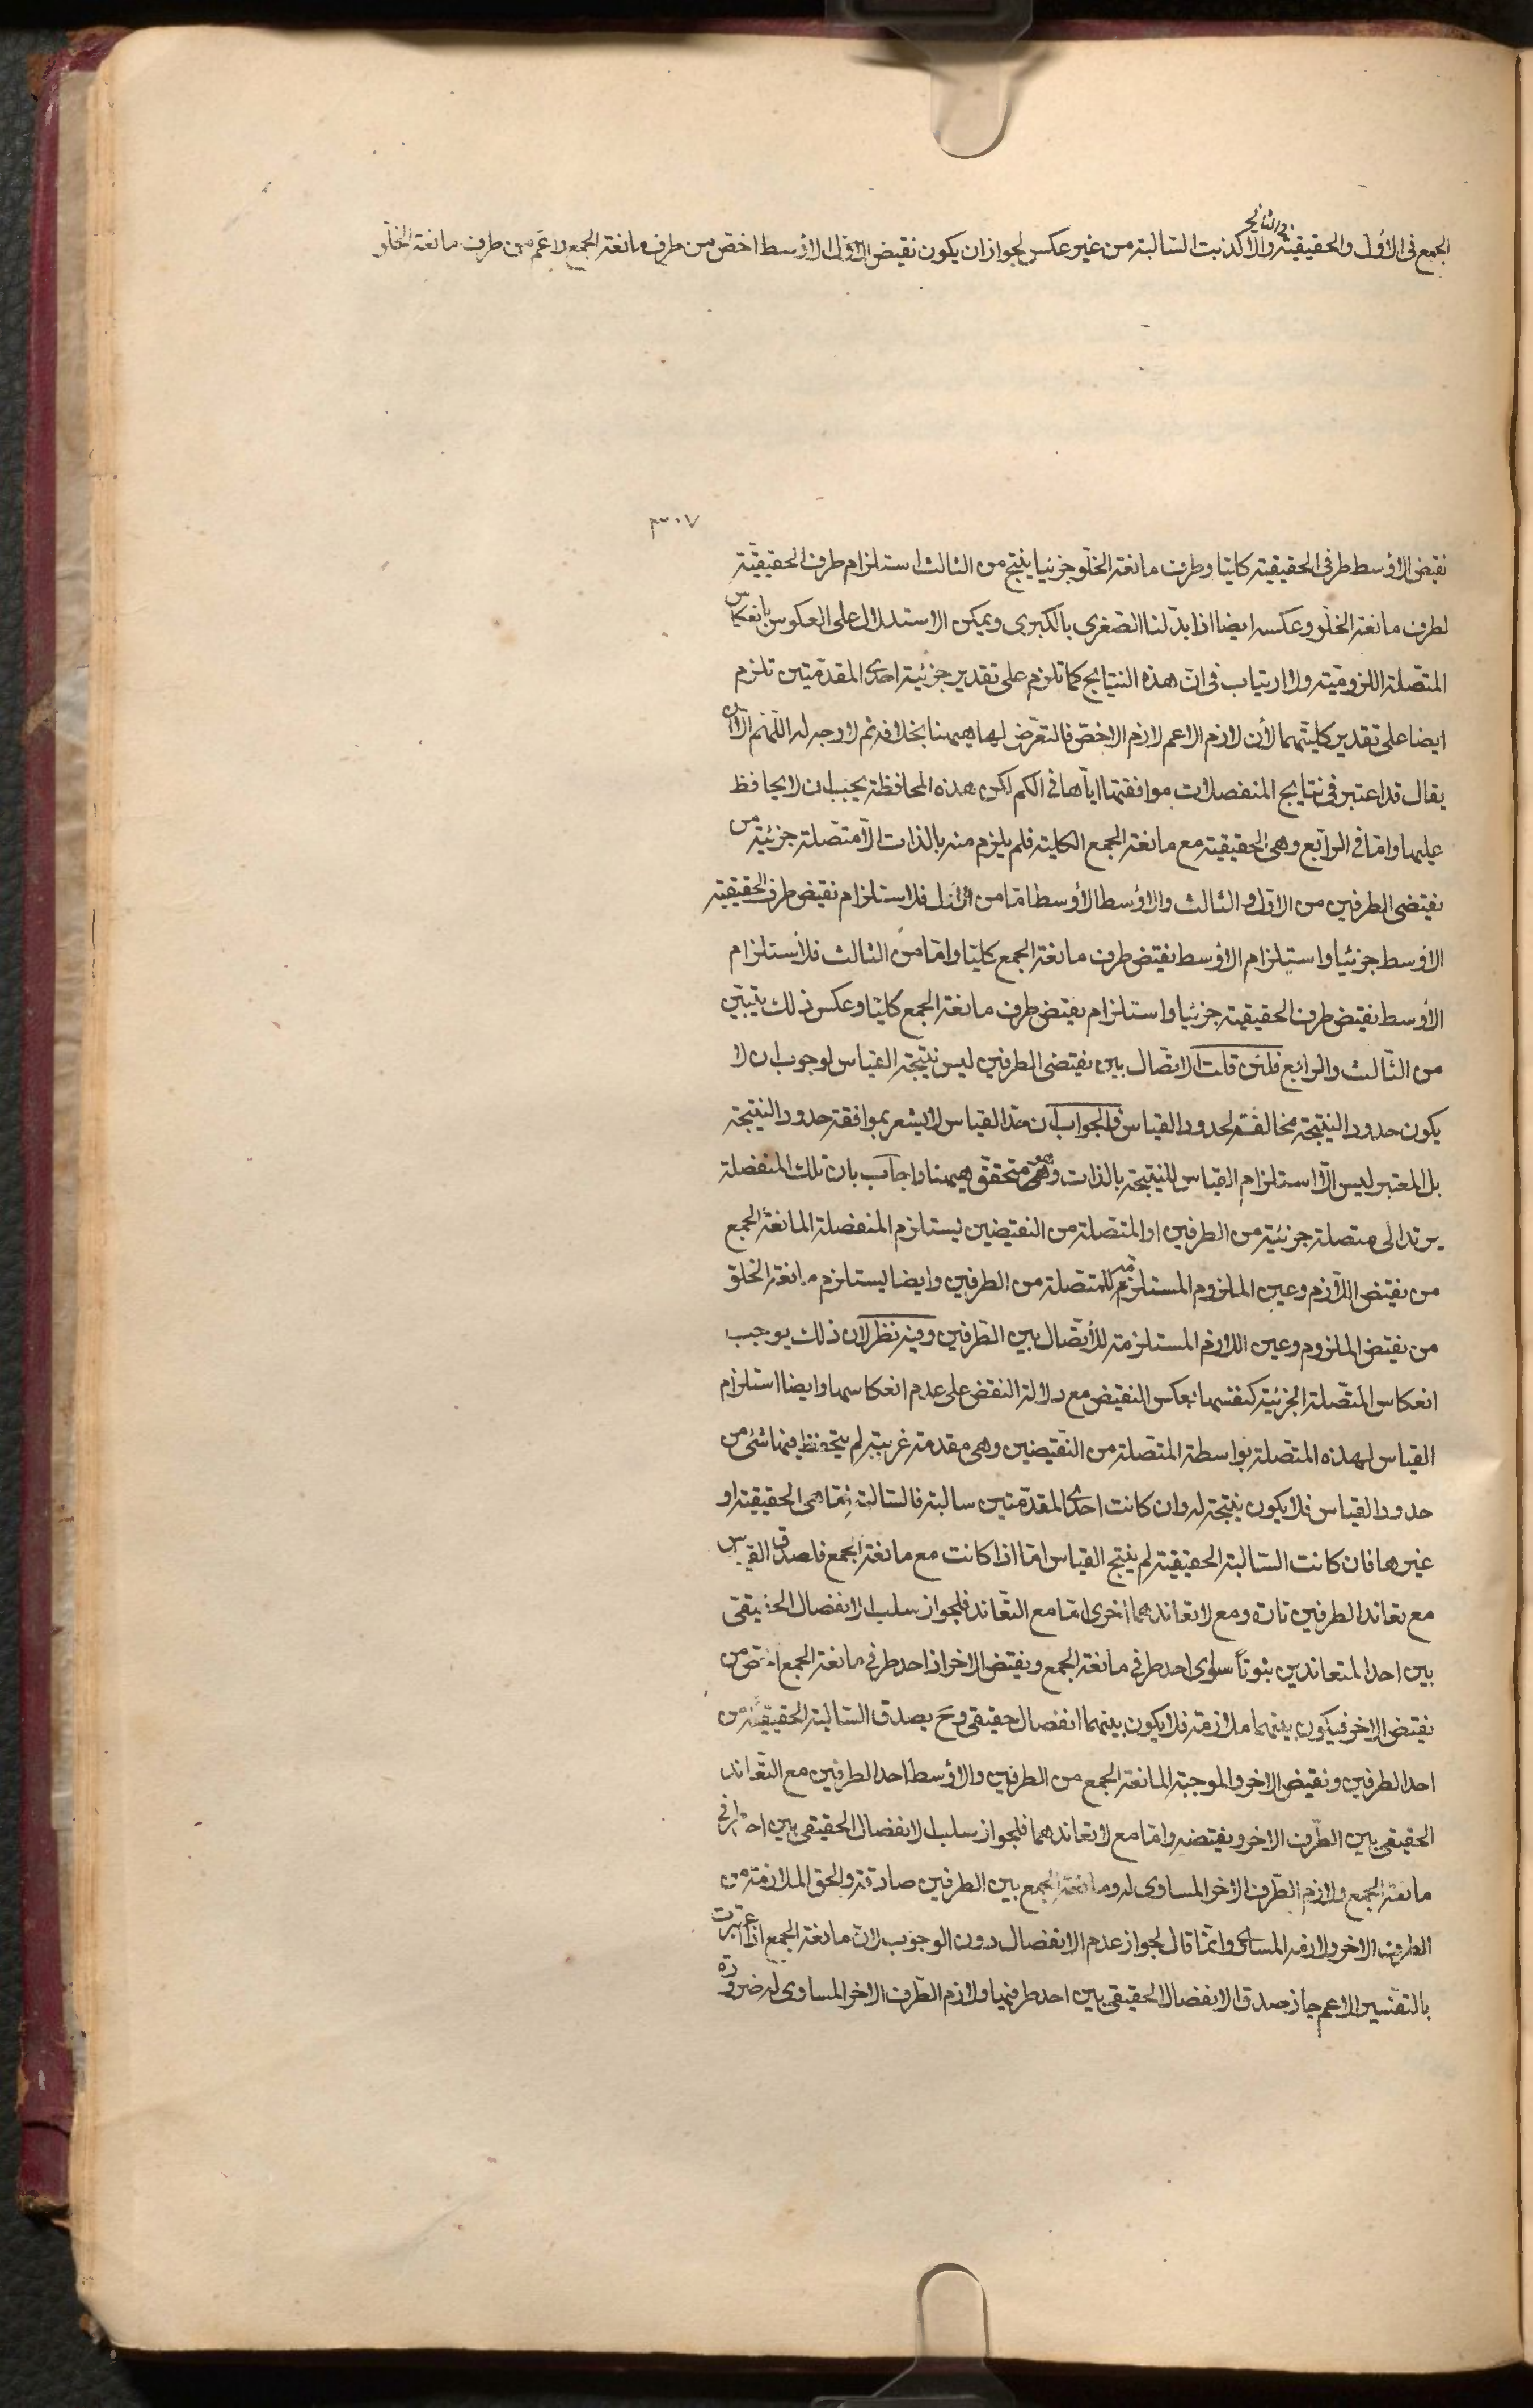 في الثاني
الجمع في الاول والحقيقية والا كذبت السالبة من غير عكس لجواز ان يكون نقيض الاوسط اخص من طرف مانعة الجمع واعم من طرف مانعة الخلو
٣٠٧
نقيض الاوسط طرفي الحقيقية كليا وطرف مانعة الخلو جزئيا ينتج من الثالث استلزام طرف الحقيقية
لطرف مانعة الخلو وعكسه ايضا اذا بدلنا الصغرى بالكبرى ويمكن الاستدلال على العكوس بانعكاس
المتصلة اللزومية ولا ارتياب في ان هذه النتايج كما تلزم على تقدير جزئية احدى المقدمتين تلزم
ايضا على تقدير كليتهما لان لازم الاعم لازم الاخص فالتعرض لها ههنا بخلافه ثم لا وجه له اللهم الا ان
يقال قد اعتبر في نتايج المنفصلات موافقتها اياها في الكم لكن هذه المحافظة يجب ان لا يحافظ
عليها واما في الرابع وهي الحقيقية مع مانعة الجمع الكلية فلم يلزم منه بالذات الا متصلة جزئية من
نقيضى الطرفين من الاول والثالث والاوسط الاوسط اما من الاول فلاستلزام نقيض طرف الحقيقية
الاوسط جزئيا واستلزام الاوسط نقيض طرف مانعة الجمع كليا واما من الثالث فلاستلزام
الاوسط نقيض طرف الحقيقية جزئيا واستلزام نقيض طرف مانعة الجمع كليا وعكس ذلك يتبين
من الثالث والرابع فلئن قلت الاتصال بين نقيضى الطرفين ليس نتيجة القياس لوجوب ان لا
يكون حدود النتيجة مخالفة لحدود القياس فالجواب ان حد القياس لا يشعر بموافقة حدود النتيجة
بل المعتبر ليس الا استلزام القياس للنتيجة بالذات وهو متحقق ههنا واجاب بان تلك المنفصلة
يرتد الى متصلة جزئية من الطرفين او المتصلة من النقيضين يستلزم المنفصلة المانعة الجمع
من نقيض اللازم وعين الملزوم المستلزمة للمتصلة من الطرفين وايضا يستلزم مانعة الخلو
من نقيض الملزوم وعين اللازم المستلزمة للاتصال بين الطرفين وفيه نظر لان ذلك يوجب
انعكاس المتصلة الجزئية كنفسها بعكس النقيض مع دلالة النقض على عدم انعكاسها وايضا استلزام
القياس لهذه المتصلة بواسطة المتصلة من النقيضين وهي مقدمة غريبة لم يتحفظ فيها شئ من
حدود القياس فلا يكون نتيجة له وان كانت احدى المقدمتين سالبة فالسالبة اما هي الحقيقية او
غيرها فان كانت السالبة الحقيقية لم ينتج القياس اما اذا كانت مع مانعة الجمع فلصدق القياس
مع تعاند الطرفين تارة ومع لا تعاندهما اخرى اما مع التعاند فلجواز سلب الانفصال الحقيقى
بين احد المتعاندين ثبوتا سوى احد طرفي مانعة الجمع ونقيض الاخر اذ احد طرفي مانعة الجمع اخص من
نقيض الاخر فيكون بينهما ملازمة فلا يكون بينهما انفصال حقيقى وح يصدق السالبة الحقيقية من
احد الطرفين ونقيض الاخر والموجبة المانعة الجمع من الطرفين والاوسط احد الطرفين مع التعاند
الحقيقى بين الطرف الاخر ونقيضه واما مع لا تعاندهما فلجواز سلب الانفصال الحقيقى بين احد طرفي
مانعة الجمع ولازم الطرف الاخر المساوى له ومانعة الجمع بين الطرفين صادقة والحق الملازمة من
الطرف الاخر ولازمه المساوى وانما قال لجواز عدم الانفصال دون الوجوب لان مانعة الجمع اذا اعتبرت
بالتفسير الاعم جاز صدق الانفصال الحقيقى بين احد طرفيها ولازم الطرف الاخر المساوى له ضرورة